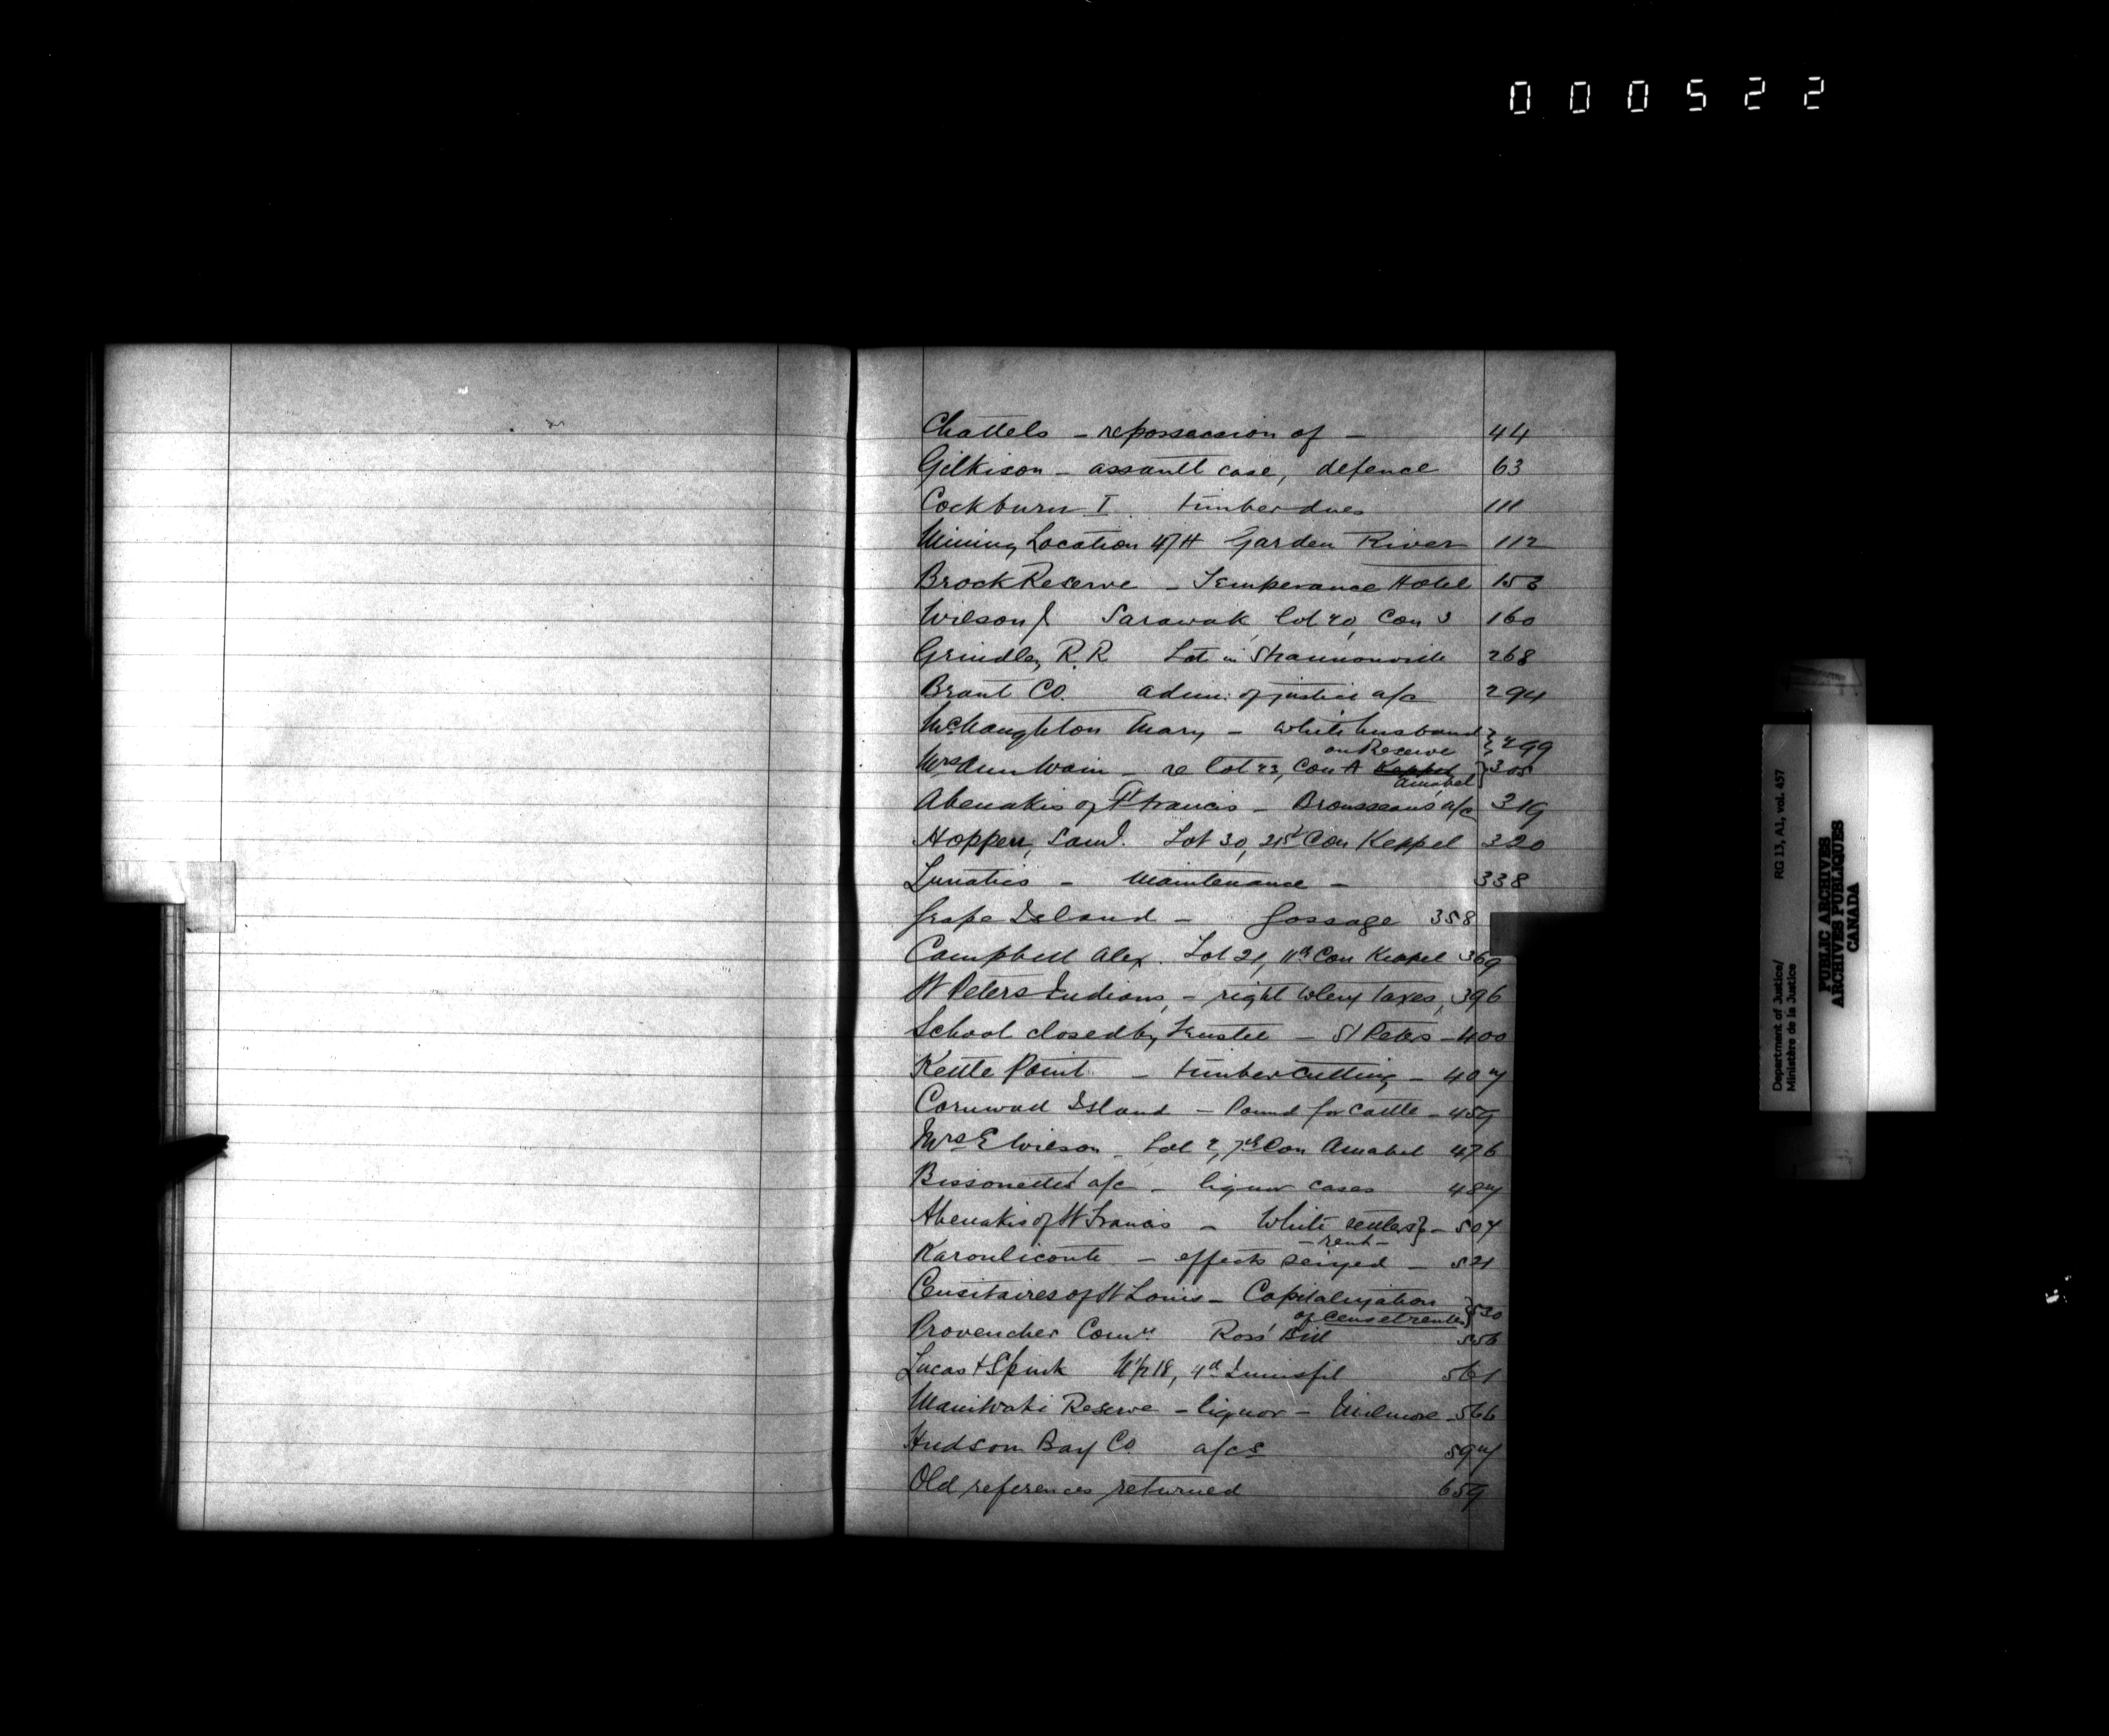 000522
Chattels - repossession of - 44
Gilkison - assault case, defence 63
Cockburn I. timber dues 111
Mining Location 47H Garden River 112
Brock Reserve - Temperance Hotel 153
Wilson J Sarawak, lot 20, Con 3 160
Grindley R.R Lot in Shannonville 268
Brant Co. adm: of justice a/c 294
McNaughton Mary - white husband
on Reserve } 299
Mrs Ann Wain - re lot 23, Con A Keppel } 305
Amabel
Abenakis of St Francis - Brousseau's a/c 319
Hopper, Saml. Lot 30, 21st Con Keppel 320
Lunatics - Maintenance - 338
Grape Island - Gossage 358
Campbell Alex. Lot 21, 11th Con Keppel 369
St Peters Indians, - right to levy taxes, 396
School closed by Trustee - St Peters - 400
Kettle Point - timber cutting - 407
Cornwall Island - Pound for Cattle - 459
Mrs E Wilson - Lot 2, 7th Con Amabel 476
Bissonette's a/c - liquor cases 487
Abenakis of St Francis - White settlers } - 507
- rent -
Karoniconte - effects seized - 521
Censitaires of St Louis - Capitalization
of cens et rentes } 530
Provencher Comn. Ross' Bill 556
Lucas & Spink N1/2 18, 4th Innisfil 561
Maniwaki Reserve - liquor - 566
Hudson Bay Co a/cs 597
Old references returned 659
Department of Justice/
Ministère de la Justice
RG 13, A1, vol. 457
PUBLIC ARCHIVES
ARCHIVES PUBLIQUES
CANADA